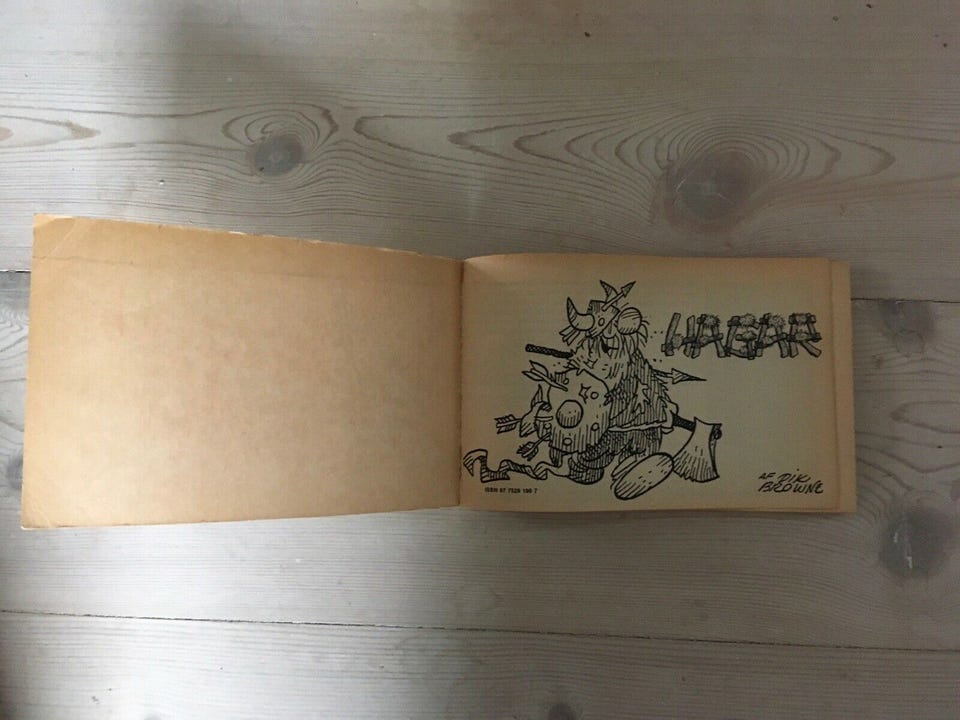 HAGAR
AF DIK
BROWNE
ISBN 87 7529 196 7